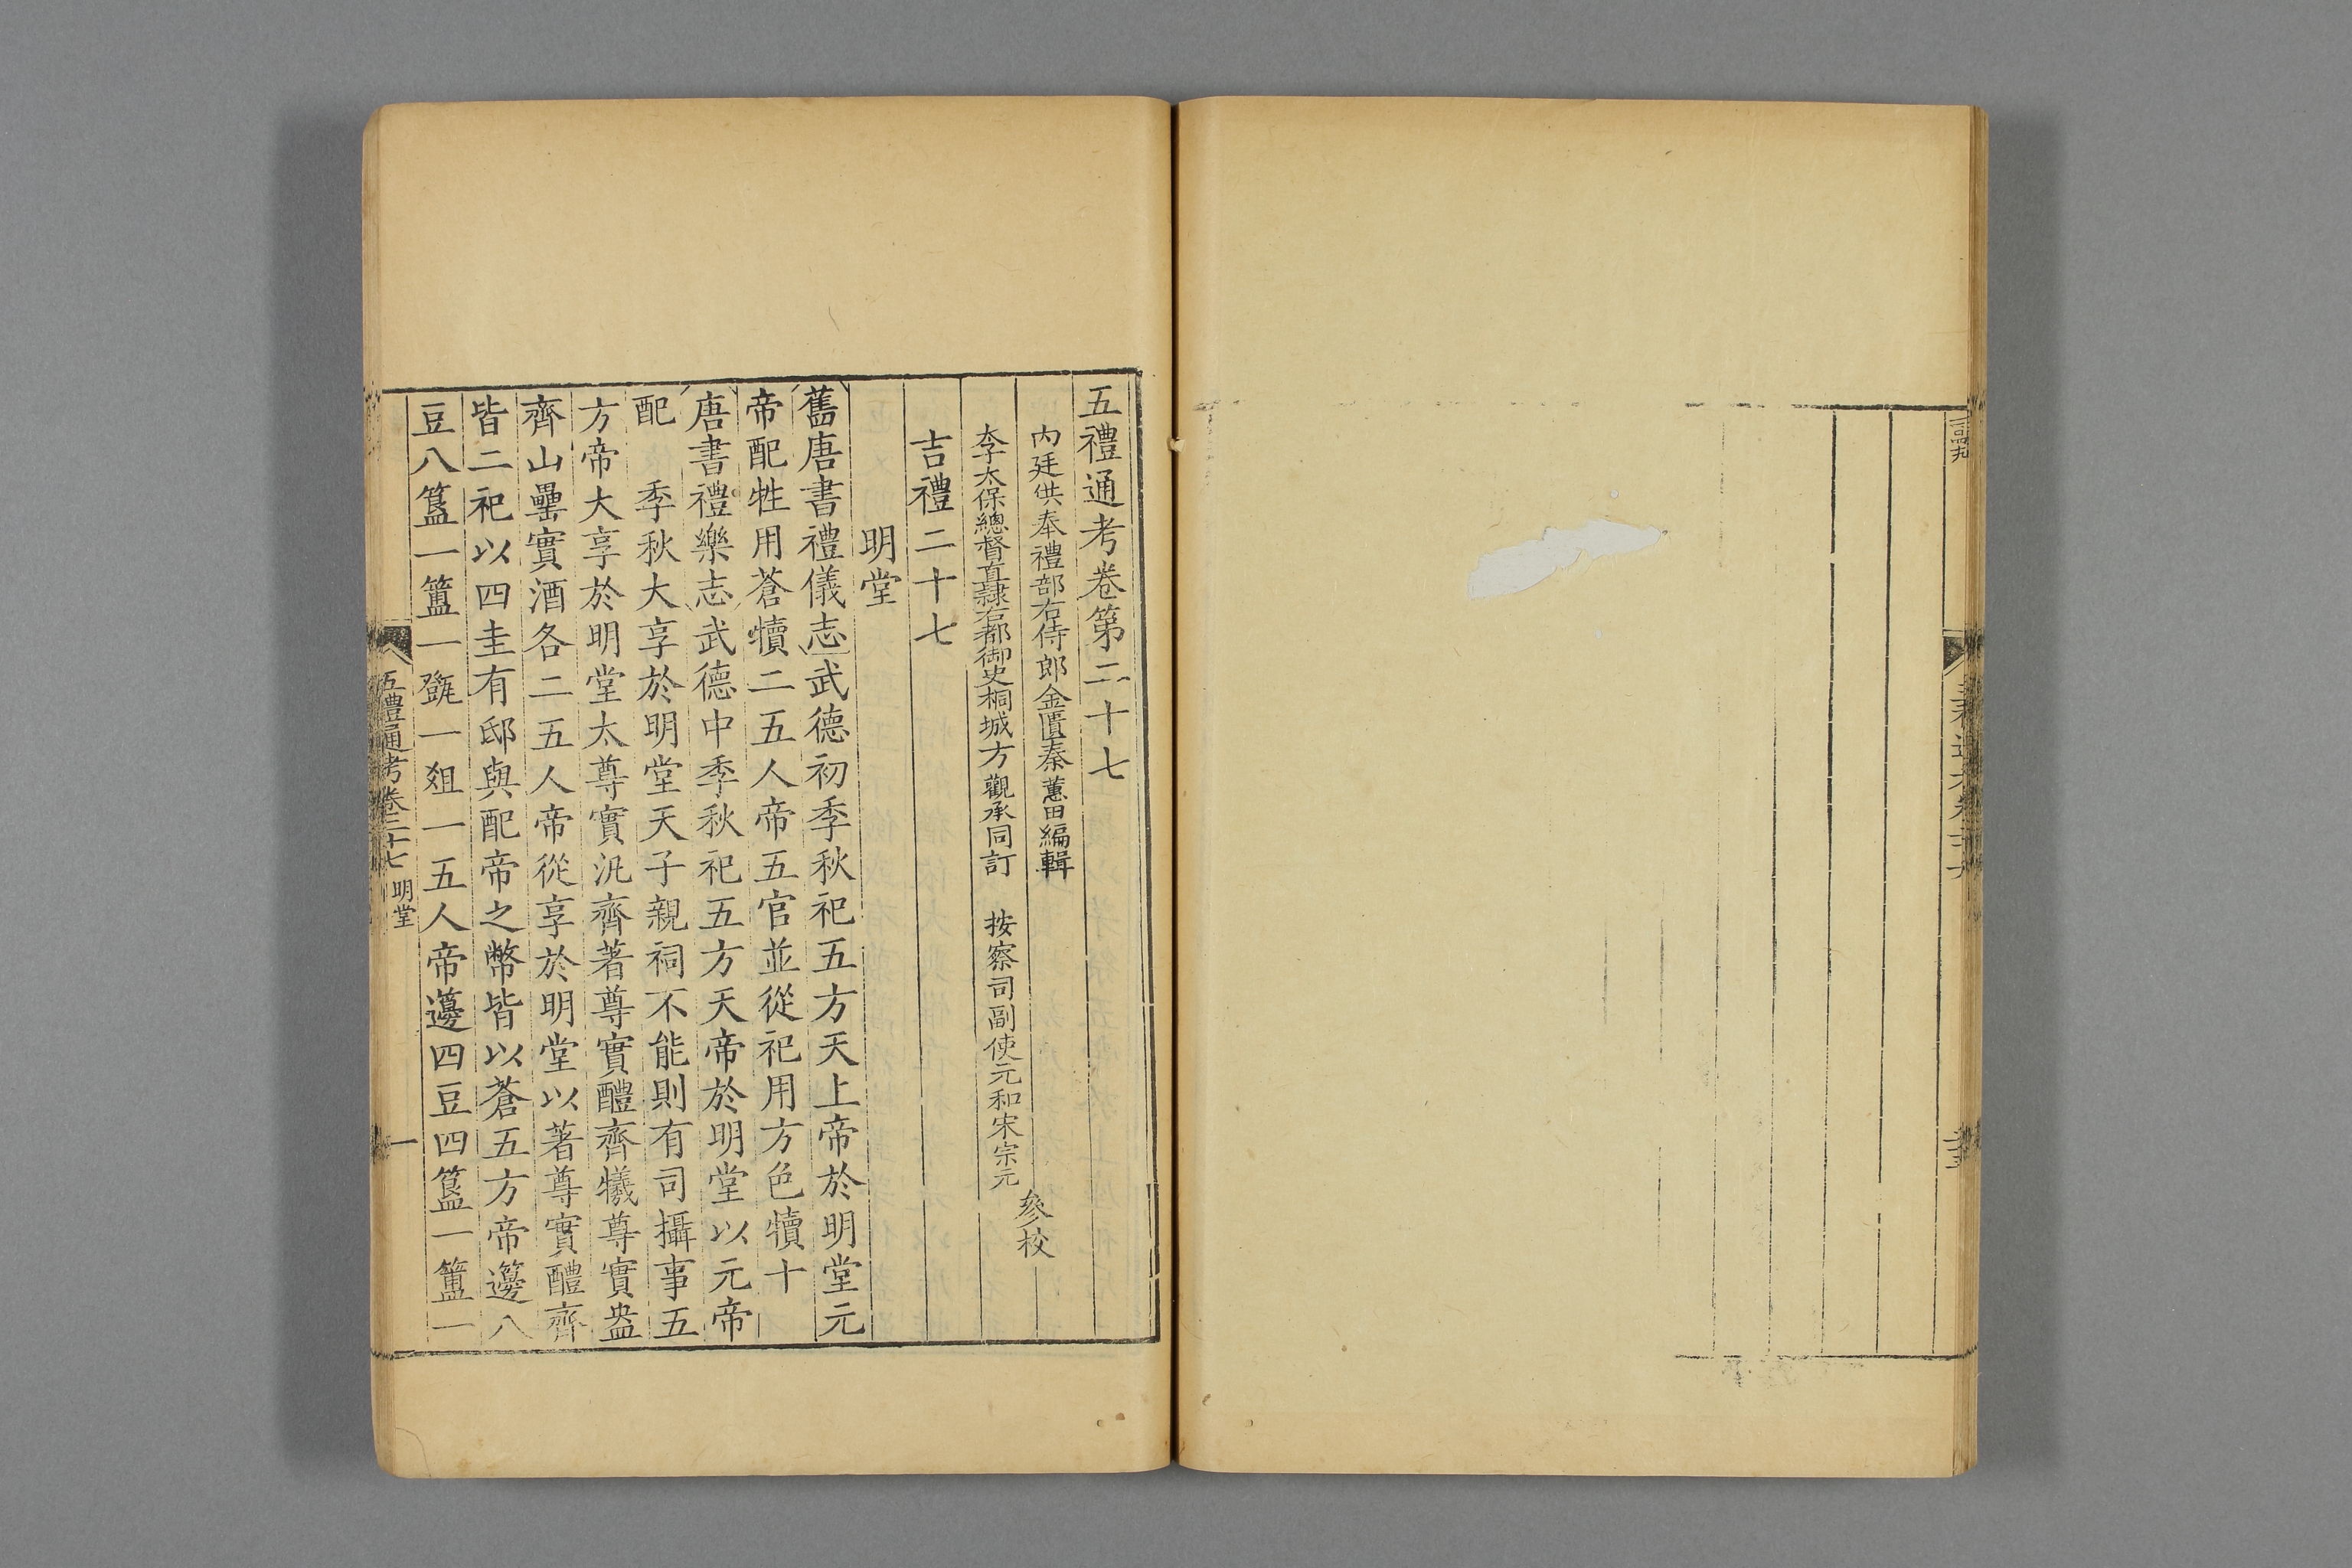 五禮通考卷第二十七
內廷供奉禮部右侍郎金匱秦蕙田編輯
李太保總督直隸右都御史桐城方觀承同訂　按察司副使元和宋宗元
參校
吉禮二十七
明堂
舊唐書禮儀志武德初季秋祀五方天上帝於明堂元
帝配牲用蒼犢二五人帝五官並從祀用方色犢十
唐書禮樂志武德中季秋祀五方天帝於明堂以元帝
配　季秋大享於明堂天子親祠不能則有司攝事五
方帝大享於明堂太尊實汎齊著尊實醴齊犧尊實盎
齊山罍實酒各二五人帝從享於明堂以著尊實醴齊
皆二祀以四圭有邸與配帝之幣皆以蒼五方帝籩八
豆八簋一簠一㽅一俎一五人帝籩四豆四簋一簠一
五禮通考卷二十七　明堂　一